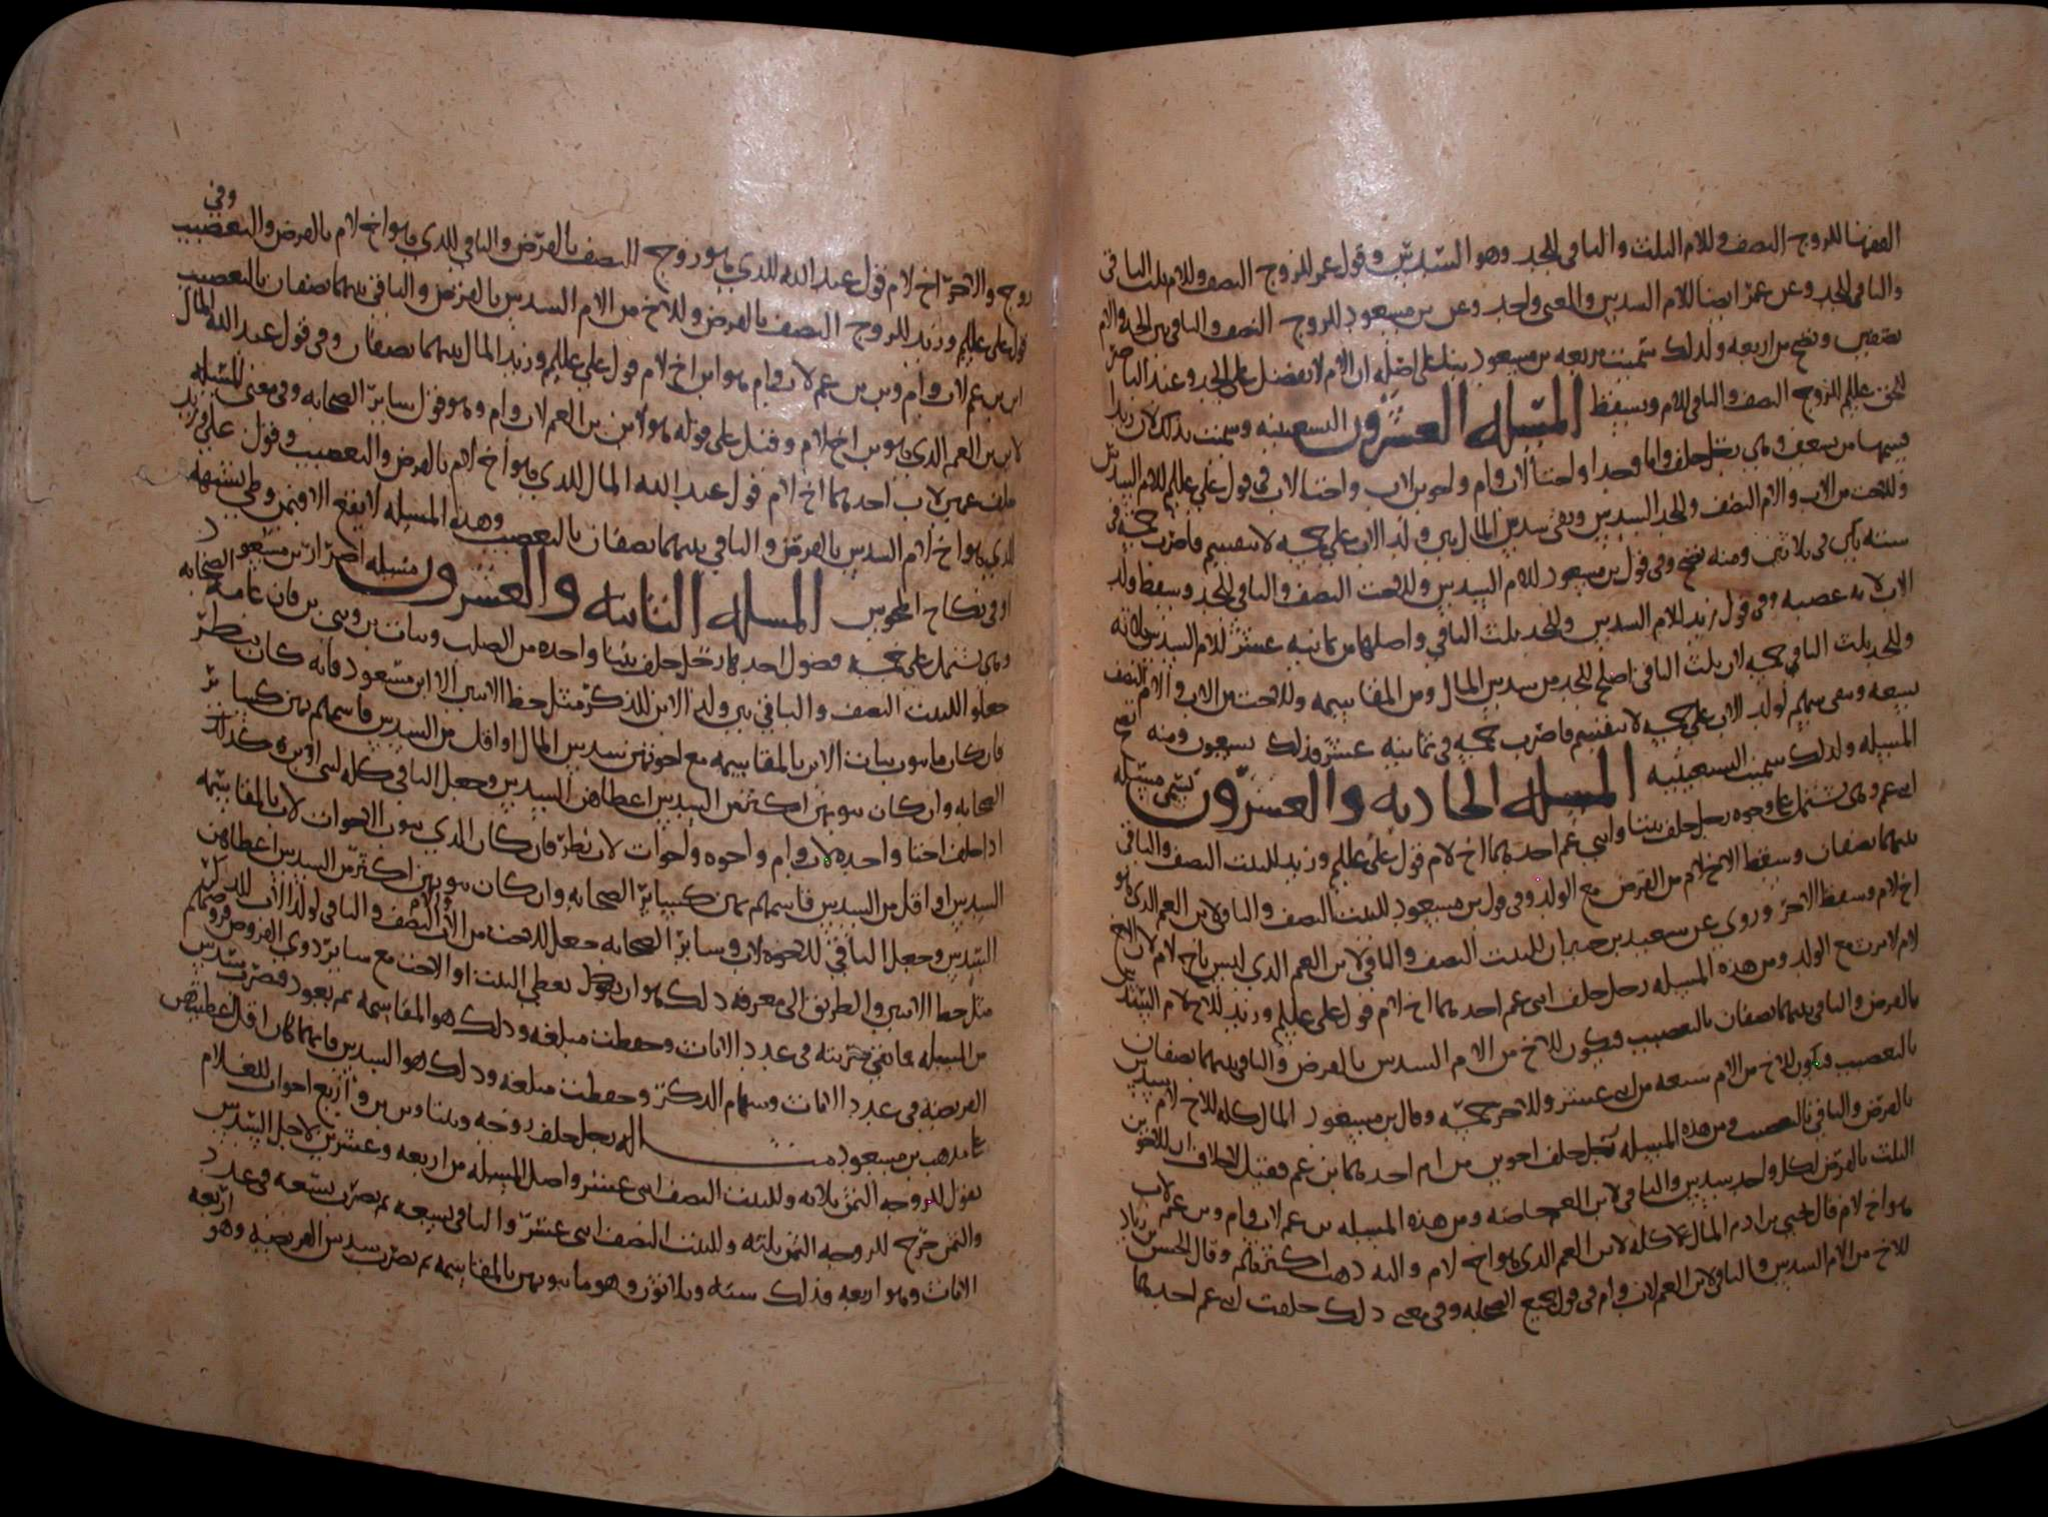 الفقها للزوج النصف وللام الثلث والباقي للجد وهو السدس وقول عمر للزوج النصف وللام ثلث الباقي
والباقي للجد وعن عمر ايضا للام السدس والمعنى واحد وعن بن مسعود للزوج النصف والباقي بين الجد والام
نصفين وتصح من اربعه ولذلك سميت مربعه بن مسعود بناء على اصله ان الام لا تفضل على الجد وعند الناصر
للحق عليلم للزوج النصف والباقي للام ويسقط المسله العشرون التسعينيه وسميت بذلك لان زيدا
قسمها من تسعين وهي رجل خلف واما وجدا واختا لاب وام واخوين لاب واختا لاب في قول علي عليلم للام السدس
وللاخت من الاب والام النصف وللجد السدس وبقى سدس المال بين ولد الاب على خمسه لا تنقسم فاضرب خمسه في
سته يكن ثلاثين ومنه تصح وفي قول بن مسعود للام السدس وللاخت النصف والباقي للجد وسقط ولد
الاب لانه عصبه وفي قول زيد للام السدس وللجد ثلث الباقي واصلها من ثمانيه عشر للام السدس ثلاثه
وللجد ثلث الباقي خمسه لان ثلث الباقي اصلح للجد من سدس المال ومن المقاسمه وللاخت من الاب والام النصف
تسعه وبقى سهم لولد الاب على خمسه لا تنقسم فاضرب خمسه في ثمانيه عشر فذلك تسعون ومنه تصح
المسله ولذلك سميت التسعينيه المسله الحاديه والعشرون تسمى مسله
ابني عم وهي تشتمل على وجوه رجل خلف بنتا وابني عم احدهما اخ لام قول علي عليلم وزيد للبنت النصف والباقي
بينهما نصفان وسقط الاخ لام من الفرض مع الولد وفي قول بن مسعود للبنت النصف والباقي لابن العم الذي هو
اخ لام وسقط الاخر وروي عن سعيد بن جبير ان للبنت النصف والباقي لابن العم الذي ليس باخ لام لان الاخ
لام لا يرث مع الولد ومن هذه المسله رجل خلف ابني عم احدهما اخ لام قول علي عليلم وزيد للاخ لام السدس
بالفرض والباقي بينهما نصفان بالتعصيب فيكون للاخ من الام السدس بالفرض والباقي بينهما نصفان
بالتعصيب فيكون للاخ من الام سبعه من اثني عشر وللاخر خمسه وقال بن مسعود المال كله للاخ لام سدس
بالفرض والباقي بالتعصيب ومن هذه المسله رجل خلف اخوين من ام احدهما بن عم فقيل لا خلاف ان للاخوين
الثلث بالفرض لكل واحد سدس والباقي لابن العم خاصه ومن هذه المسله بن عم لاب وام وبن عم لاب
هو اخ لام قال يحيى بن ادم المال كله لابن العم الذي هو اخ لام واليه ذهب اكثرهم وقال الحسن بن زياد
للاخ من الام السدس والباقي لابن العم لاب وام في قول جميع الصحابه وفي معنى ذلك خلفت ابني عم احدهما
وفي
زوج والاخر اخ لام قول عبدالله للذي هو زوج النصف بالفرض والباقي للذي هو اخ لام بالفرض والتعصيب
قول علي عليلم وزيد للزوج النصف بالفرض وللاخ من الام السدس بالفرض والباقي بينهما نصفان بالتعصيب
ابن بن عم لاب وام وبن بن عم لاب وام هو ابن اخ لام قول علي عليلم وزيد المال بينهما نصفان وفي قول عبدالله المال
لابن بن العم الذي هو بن اخ لام وقيل على قوله هو لابن بن العم لاب وام وهو قول سائر الصحابه وفي معنى المسله
خلف عمين لاب احدهما اخ لام قول عبدالله المال للذي هو اخ لام بالفرض والتعصيب وقول علي وزيد
للذي هو اخ لام السدس بالفرض والباقي بينهما نصفان بالتعصيب وهذه المسله لا تقع الا في وطي بشبهه
او في نكاح المجوس المسله الثانيه والعشرون مسله اضرار بن مسعود
وهي تشتمل على خمسه فصول احدها رجل خلف بنتا واحده من الصلب وبنات بن وبني بن فان عامه الصحابه
جعلو اللبنت النصف والباقي بين ولد الابن للذكر مثل حظ الانثيين الا ابن مسعود فانه كان ينظر
فان كان ما ينوب بنات الابن بالمقاسمه مع اخوتهن سدس المال او اقل من السدس قاسمهم بهن كسائر
الصحابه وان كان ينوبهن اكثر من السدس اعطاهن السدس وجعل الباقي كله لبني الابن وكذلك
اذا خلف اختا واحده لاب وام واخوه واخوات لاب نظر فان كان الذي ينوب الاخوات لاب بالمقاسمه
السدس او اقل من السدس قاسمهم بهن كسائر الصحابه وان كان ينوبهن اكثر من السدس اعطاهن
السدس وجعل الباقي للاخوه لاب وسائر الصحابه جعل للاخت من الاب والام النصف والباقي لولد الاب للذكر
مثل حظ الانثيين والطريق الى معرفه ذلك هو ان تعطي البنت او الاخت مع سائر ذوي الفروض فروضهم
من المسله فما بقي ضربته في عدد الاناث وحفظت مبلغه وذلك هو المقاسمه ثم تعود فتضرب سدس
الفريضه في عدد الاناث وسهام الذكر وحفظت مبلغه وذلك هو السدس فايهما كان اقل اعطيتهن
على مذهب بن مسعود مثاله رجل خلف زوجه وبنتا وبن بن واربع اخوات للغلام
تقول للزوجه الثمن ثلاثه وللبنت النصف اثني عشر واصل المسله من اربعه وعشرين لاجل السدس
والثمن خرج للزوجه الثمن ثلثه وللبنت النصف اثني عشر والباقي تسعه ثم تضرب تسعه في عدد
الاناث وهو اربعه فذلك سته وثلاثون وهو ما ينوبهن بالمقاسمه ثم تضرب سدس الفريضه وهو اربعه